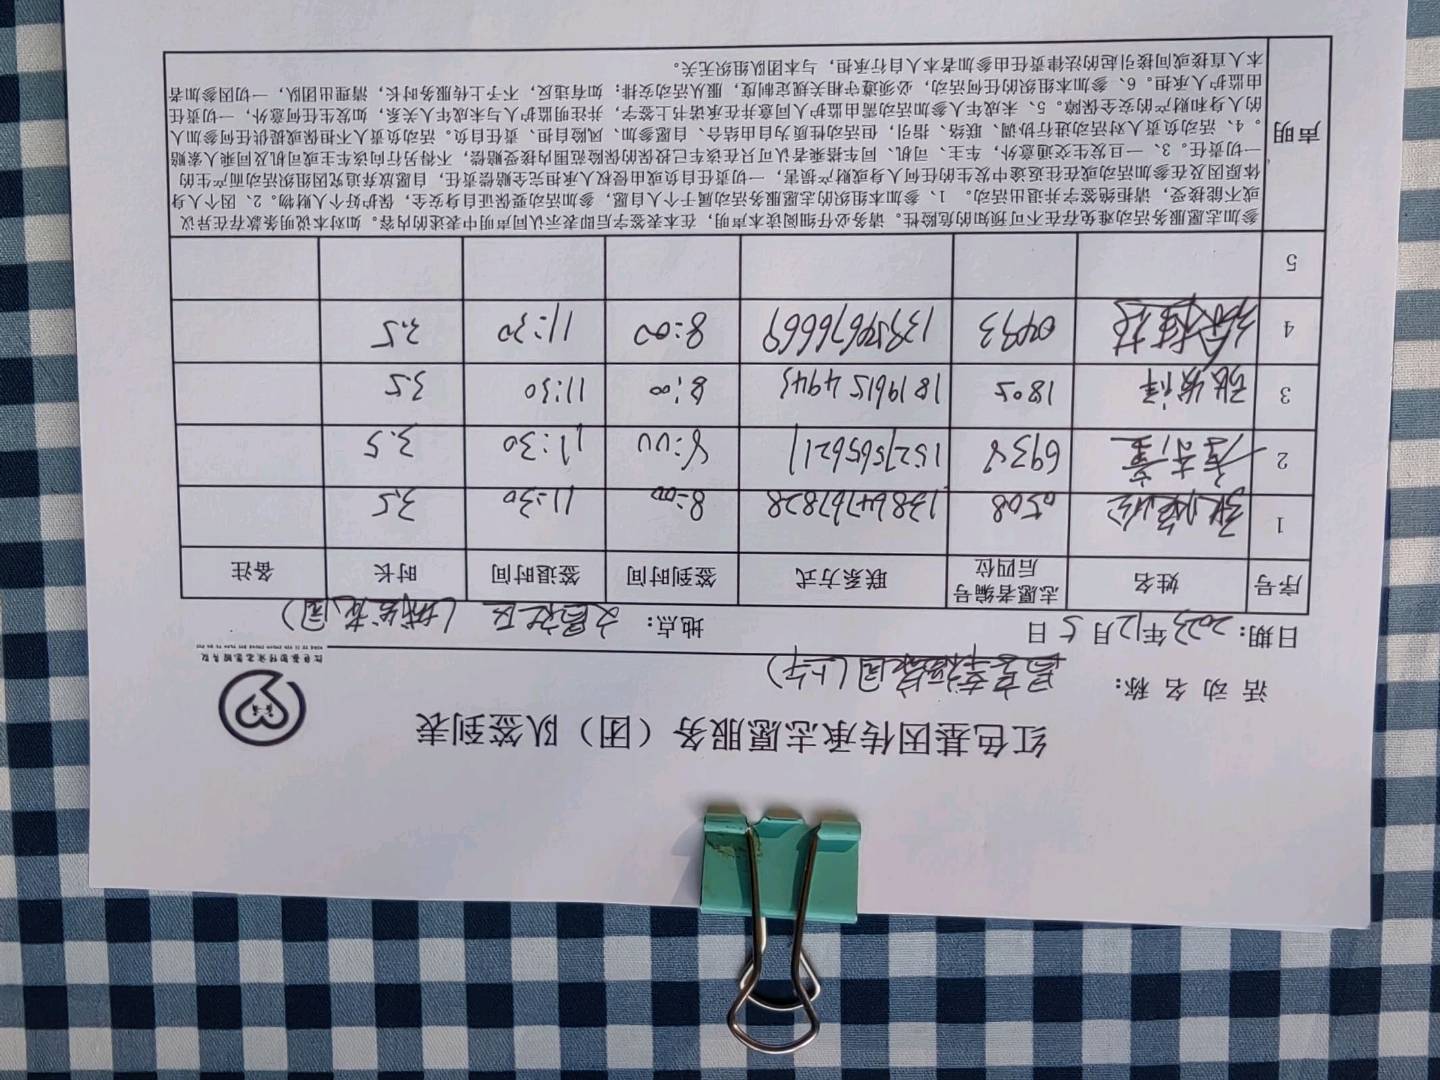 红色基因传承志愿服务（团）队签到表
活动名称：
日期：2023年12月5日 地点：文昌社区（
序号 姓名 志愿者编号后四位 联系方式 签到时间 签退时间 时长 备注
1 0508 13864767828 8:00 11:30 3.5
2 6938 15275656211 8:00 11:30 3.5
3 1805 18196154943 8:00 11:30 3.5
4 0493 13954676669 8:00 11:30 3.5
5
声明
参加志愿服务活动难免存在不可预知的危险性。请务必仔细阅读本声明，在本表签字后即表示认同声明中表述的内容。如对本说明条款存在异议
或不能接受，请拒绝签字并退出活动。 1、参加本组织的志愿服务活动属于个人自愿，参加活动要保证自身安全，保护好个人财物。2、因个人身
体原因及在参加活动或在往返途中发生的任何人身或财产损害，一切责任自负或由侵权人承担完全赔偿责任，自愿放弃追究因组织活动而产生的
一切责任。3、一旦发生交通意外，车主、司机、同车搭乘者认可只在该车已投保的保险范围内接受赔偿，不得另行向该车主或司机及同乘人索赔
。4、活动负责人对活动进行协调、联络、指引，但活动性质为自由结合、自愿参加、风险自担、责任自负。活动负责人不担保或提供任何参加人
的人身和财产的安全保障。5、未成年人参加活动需由监护人同意并在承诺书上签字，并注明监护人与未成年人关系，如发生任何意外，一切责任
由监护人承担。6、参加本组织的任何活动，必须遵守相关规定制度，服从活动安排；如有违反，不予上传服务时长，清理出团队，一切因参加者
本人直接或间接引起的法律责任由参加者本人自行承担，与本团队组织无关。